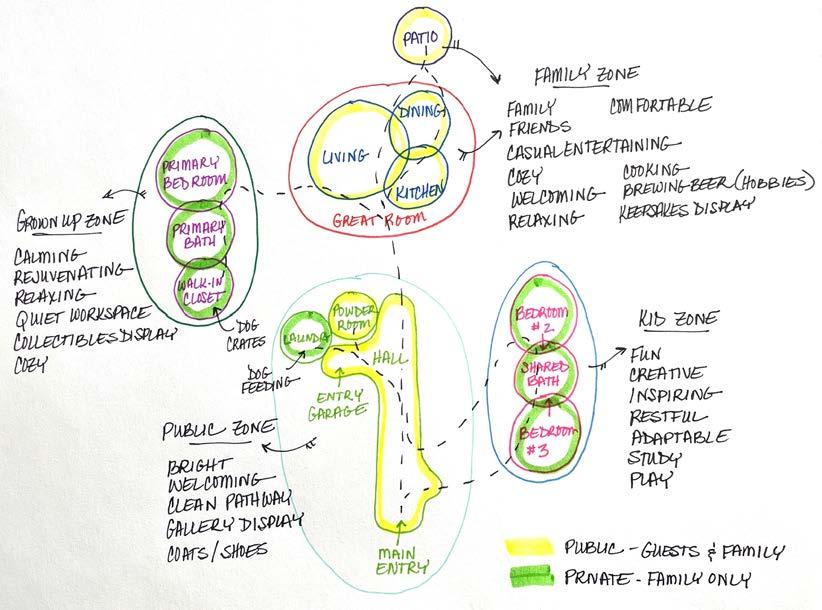 PATIO
FAMILY ZONE
FAMILY COMFORTABLE
FRIENDS
CASUAL ENTERTAINING
COZY COOKING
WELCOMING BREWING BEER (HOBBIES)
RELAXING KEEPSAKES DISPLAY
DINING
LIVING
KITCHEN
GREAT ROOM
PRIMARY
BEDROOM
PRIMARY
BATH
WALK-IN
CLOSET
GROWN UP ZONE
CALMING
REJUVENATING
RELAXING
QUIET WORKSPACE
COLLECTIBLES DISPLAY
COZY
DOG
CRATES
POWDER
ROOM
LAUNDRY
HALL
DOG
FEEDING
ENTRY
GARAGE
BEDROOM
#2
SHARED
BATH
BEDROOM
#3
KID ZONE
FUN
CREATIVE
INSPIRING
RESTFUL
ADAPTABLE
STUDY
PLAY
PUBLIC ZONE
BRIGHT
WELCOMING
CLEAN PATHWAY
GALLERY DISPLAY
COATS/SHOES
MAIN
ENTRY
PUBLIC - GUESTS & FAMILY
PRIVATE - FAMILY ONLY